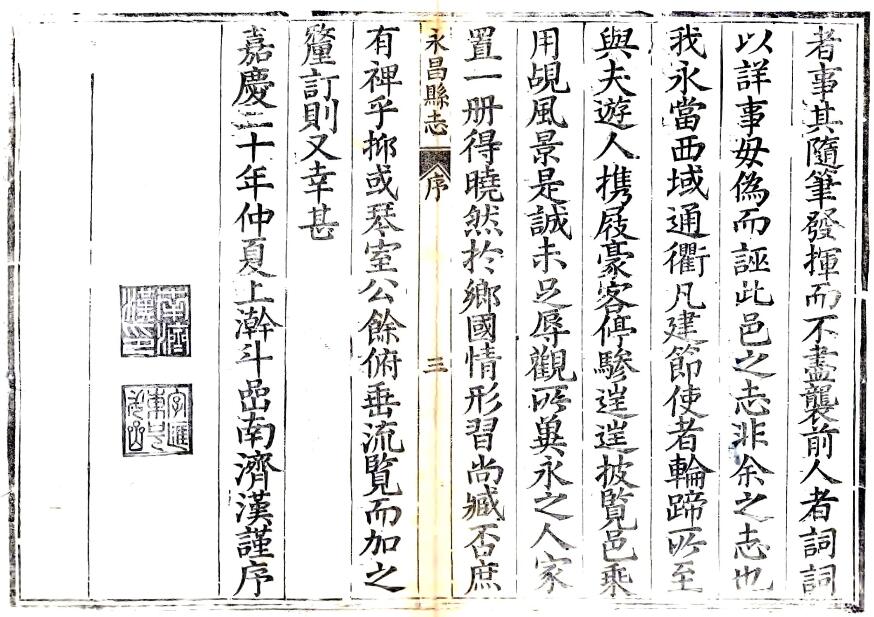 者事其隨筆發揮而不盡襲前人者詞詞
以詳事毋偽而誣此邑之志非余之志也
我永當西域通衢凡建節使者輪蹄所至
與夫遊人携屐豪客停驂披覽邑乘
用覘風景是誠未足辱觀所冀永之人家
置一册得曉然於鄉國情形習尚臧否庶
永昌縣志 序 三
有裨乎抑或琴室公餘俯垂流覽而加之
釐訂則又幸甚
嘉慶二十年仲夏上澣斗嵒南濟漢謹序
南濟漢印